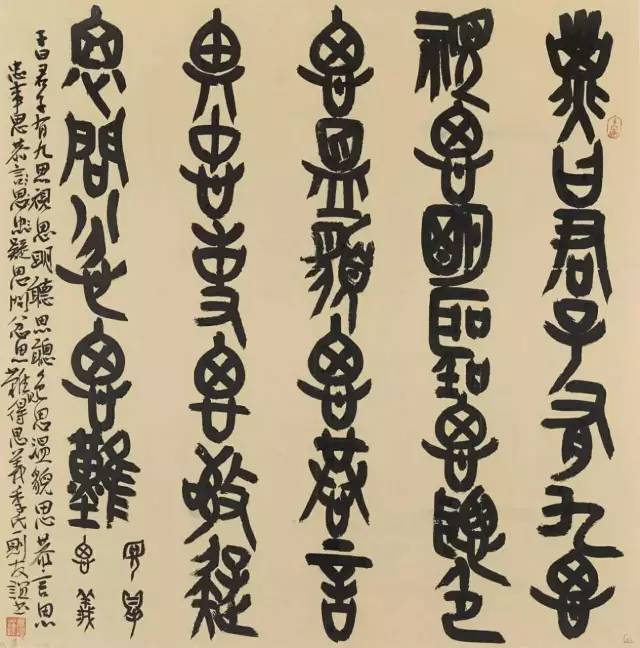 子曰君子有九思
視思明聽思聰色
思溫貌思恭言
思忠事思敬疑
思問忿思難
見得
思義
子曰君子有九思視思明聽思聰色思溫貌思恭言思
忠事思恭言思忠疑思問忿思難得思義季氏一則友誼書